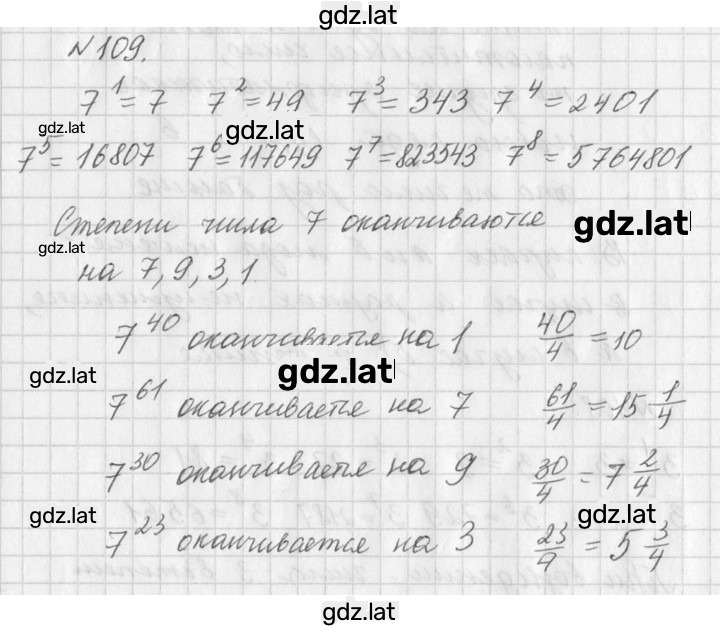 gdz.lat
№109.
7^1=7 7^2=49 7^3=343 7^4=2401
gdz.lat gdz.lat
7^5=16807 7^6=117649 7^7=823543 7^8=5764801
Степени числа 7 оканчиваются gdz.lat
gdz.lat
на 7, 9, 3, 1.
7^40 оканчивается на 1 40/4=10
gdz.lat gdz.lat
7^61 оканчивается на 7 61/4=15 1/4
7^30 оканчивается на 9 30/4=7 2/4
gdz.lat gdz.lat
7^23 оканчивается на 3 23/4=5 3/4
gdz.lat